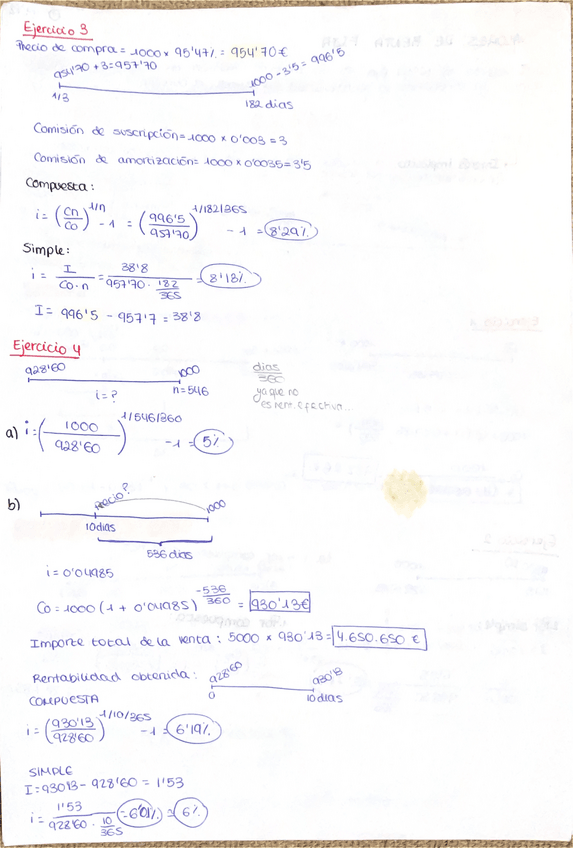 Ejercicio 3
Precio de compra = 1000 x 95'47% = 954'70 €
954'70 + 3 = 957'70
1000 - 3'5 = 996'5
1/3
182 días
Comisión de suscripción = 1000 x 0'003 = 3
Comisión de amortización = 1000 x 0'0035 = 3'5
Compuesta:
i = (Cn/Co)^1/n - 1 = (996'5/957'70)^1/182/365 - 1 = 8'29%
Simple:
i = I/Co·n = 38'8/957'70 · 182/365 = 8'18%
I = 996'5 - 957'7 = 38'8
Ejercicio 4
928'60
1000
i = ?
n = 546
días/360
ya que no
es rent. efectiva...
a) i = (1000/928'60)^1/546/360 - 1 = 5%
b)
Precio?
1000
10 días
536 días
i = 0'04985
Co = 1000 (1 + 0'04985)^-536/360 = 930'13€
Importe total de la venta: 5000 x 930'13 = 4.650.650 €
Rentabilidad obtenida:
928'60
930'13
0
10 días
COMPUESTA
i = (930'13/928'60)^1/10/365 - 1 = 6'19%
SIMPLE
I = 930'13 - 928'60 = 1'53
i = 1'53/928'60 · 10/365 = 6'01% = 6%